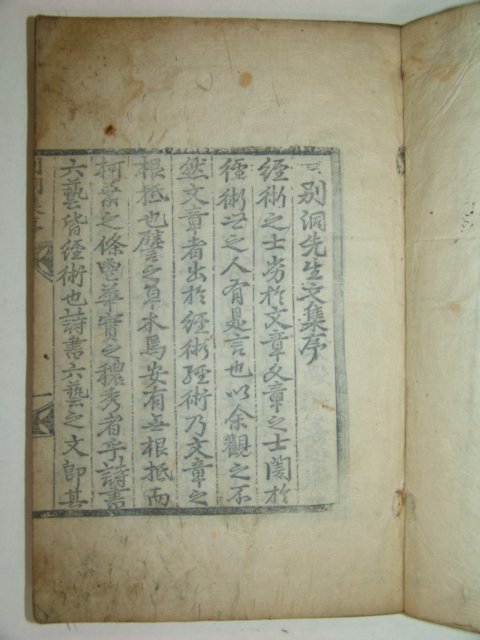 別洞先生文集序
經術之士劣於文章文章之士闇於
經術世之人有是言也以余觀之不
然文章者出於經術經術乃文章之
根柢也譬之草木焉安有無根柢而
柯葉之條鬯華實之穠秀者乎詩書
六藝皆經術也詩書六藝之文卽其